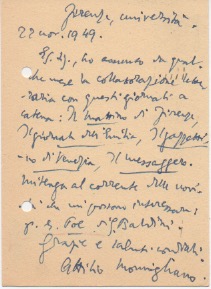 Firenze, università.
22 nov. 1949.
Eg. Sig., ho assunto da qual-
che mese la collaborazione lette-
raria con questi giornali a
catena: Il mattino di Firenze,
Il giornale dell'Emilia, Il gazzetti-
no di Venezia, Il messaggero.
Mi tenga al corrente delle novi-
tà che mi possono interessare:
p. es. Foe di Baldini.
Grazie e saluti cordiali
Attilio Momigliano.